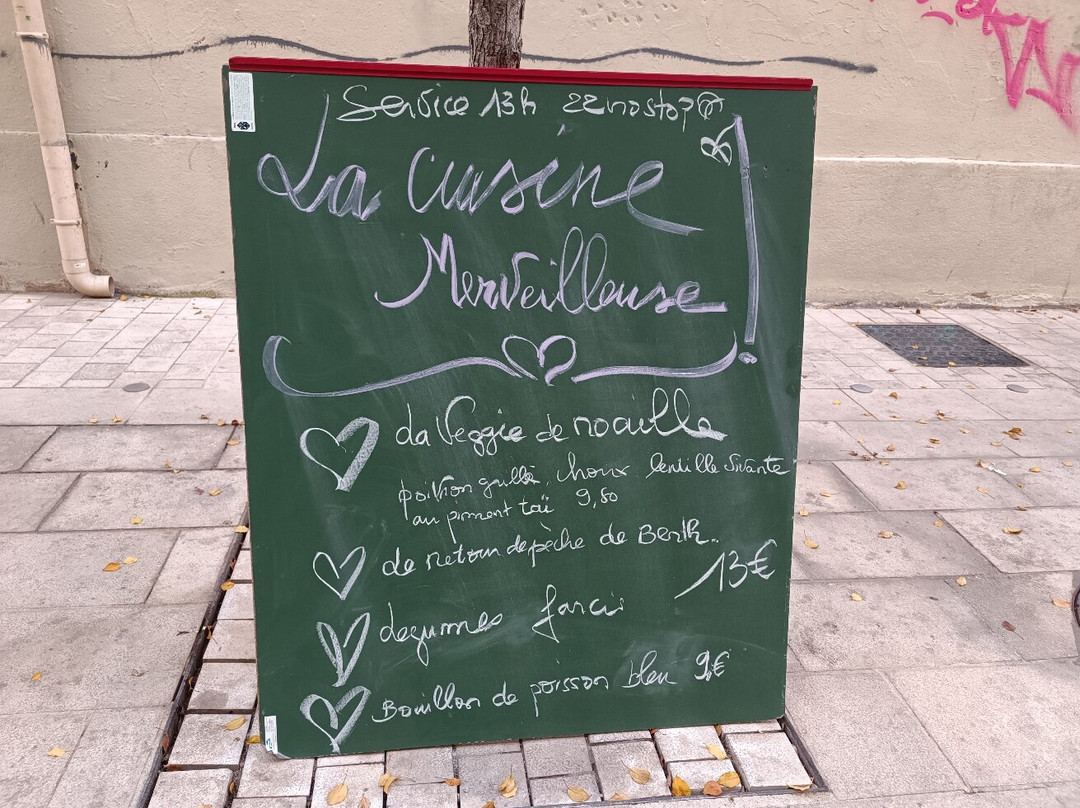 Service 13h 22 nostop
La Cuisine
Merveilleuse
La Veggie de noaille
poivron grillé, choux lentille
au piment taï 9,80
de retour de pèche de Berth..
13€
Legumes farcis
Bouillon de poisson bleu 9€